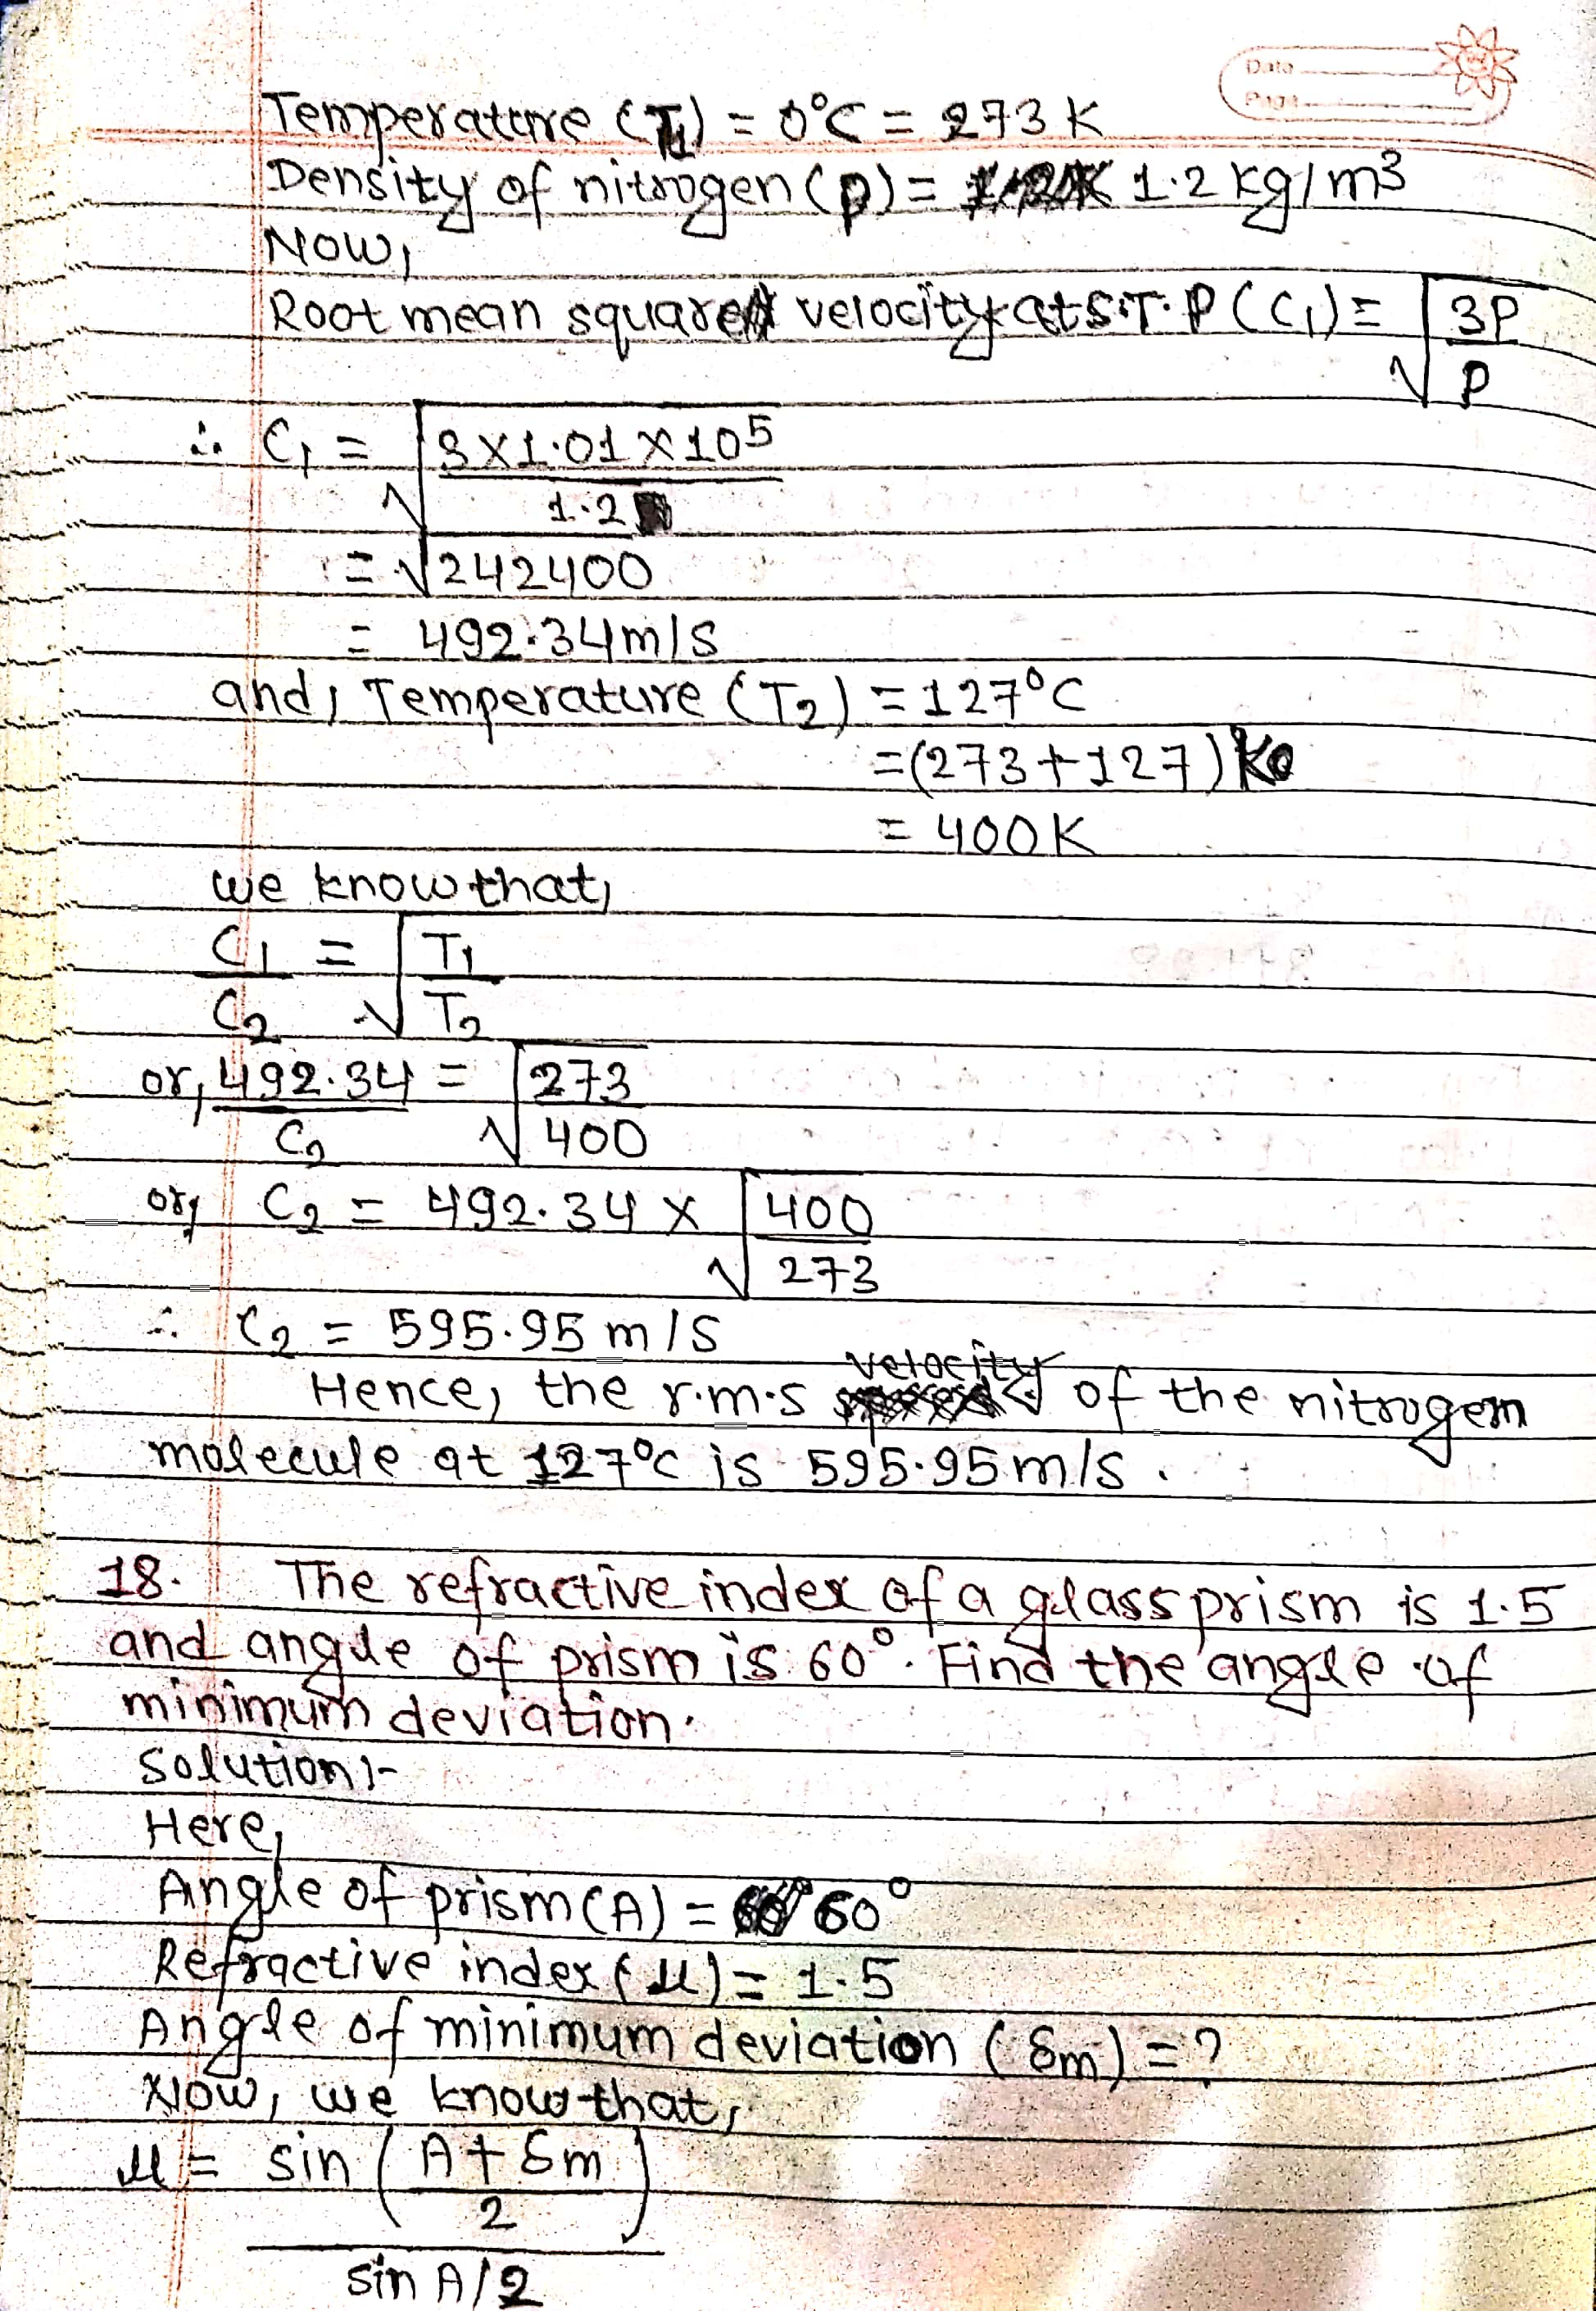 Date
Page
Temperature (T1) = 0°C = 273 K
Density of nitrogen (ρ) = 1.2 kg/m³
Now,
Root mean square velocity at S.T.P (C1) = √(3P/ρ)
∴ C1 = √(3×1.01×10⁵/1.2)
= √242400
= 492.34 m/s
and, Temperature (T2) = 127°C
= (273+127) K
= 400K
we know that,
C1/C2 = √(T1/T2)
or, 492.34/C2 = √(273/400)
or, C2 = 492.34 × √(400/273)
∴ C2 = 595.95 m/s
Hence, the r.m.s velocity of the nitrogen
molecule at 127°C is 595.95 m/s.
18. The refractive index of a glass prism is 1.5
and angle of prism is 60°. Find the angle of
minimum deviation.
Solution:-
Here,
Angle of prism (A) = 60°
Refractive index (μ) = 1.5
Angle of minimum deviation (δm) = ?
Now, we know that,
μ = sin((A+δm)/2) / sin A/2